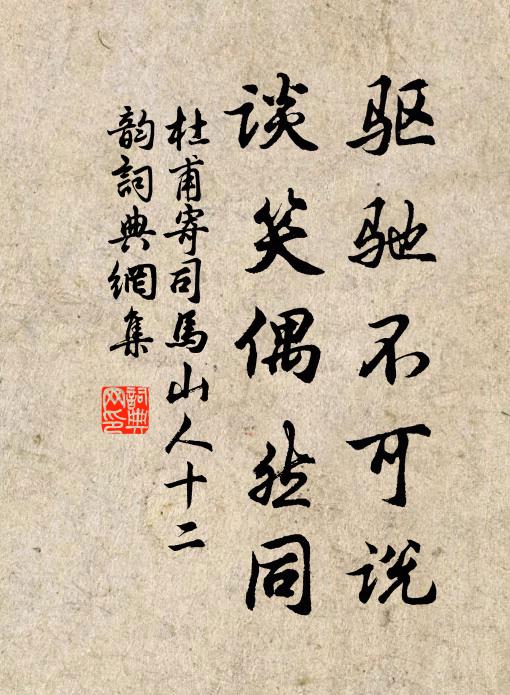 驱驰不可说
谈笑偶然同
杜甫寄司馬山人十二
韵詞典網集
詞典
网印